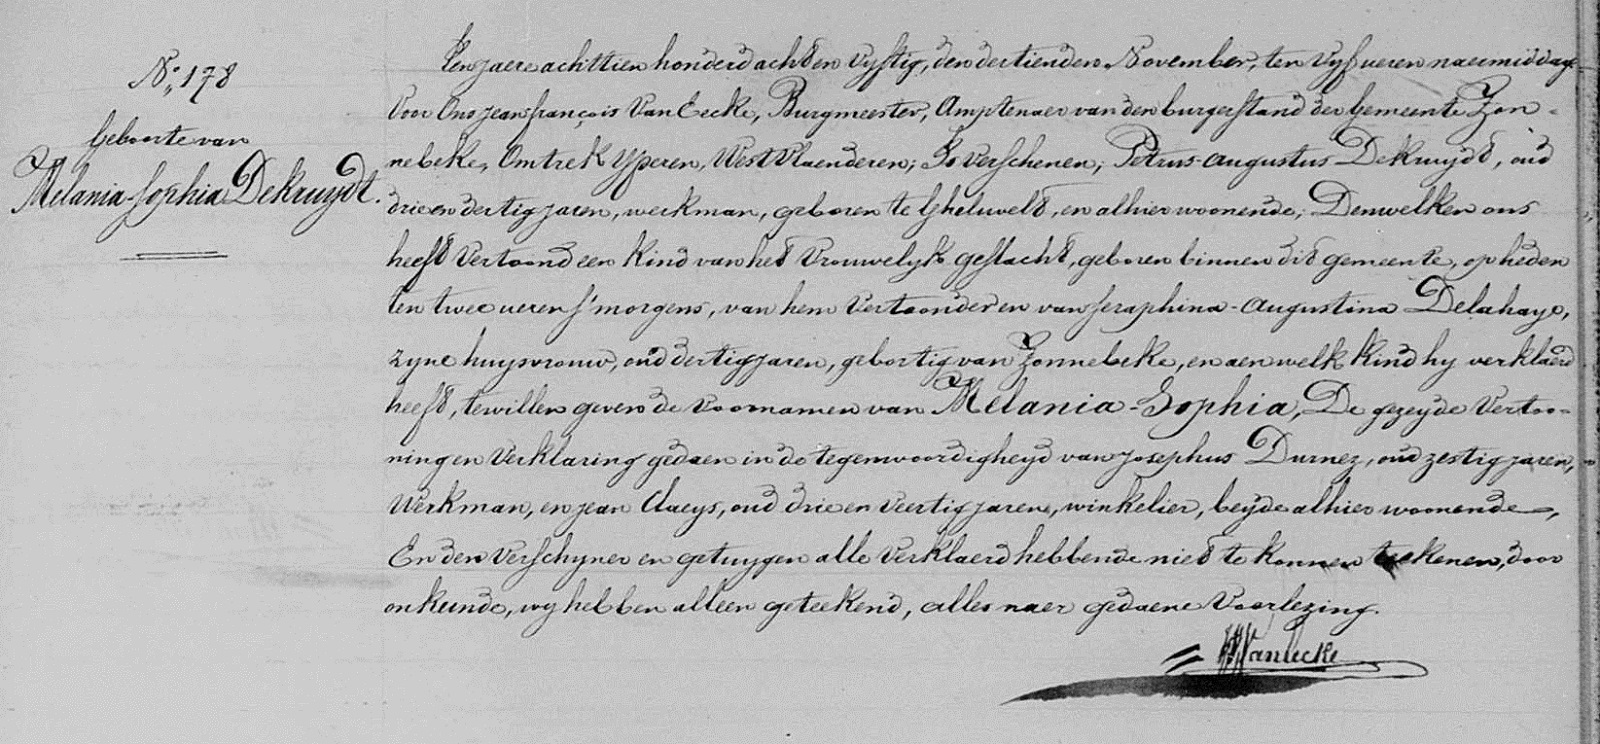 N.° 178
Geboorte van
Melania-Sophia DeKruydt.
Ten jaere achttien honderd acht en vyftig, den dertienden November, ten vyf ueren naermiddag
voor Ons jean françois Van Eecke, Burgmeester, Amptenaer van den burgerstand der Gemeente Zon-
nebeke, Omtrek Yperen, West Vlaenderen; Is verschenen, Petrus-augustus DeKruydt, oud
drie en dertig jaren, werkman, geboren te Gheluveld, en alhier woonende; Denwelken ons
heeft Vertoond een Kind van het Vrouwelyk geslacht, geboren binnen dit gemeente, op heden
ten twee ueren s'morgens, van hem Vertoonder en van Seraphina-Augustina Delahaye,
zyne huysvrouw, oud dertig jaren, geboortig van Zonnebeke, en aen welk Kind hy verklaerd
heeft, te willen geven de Voornamen van Melania-Sophia, De gezeyde Vertoo-
ning en Verklaring gedaen in de tegenwoordigheyd van Josephus Durnez, oud zestig jaren,
Werkman, en jean Claeys, oud drie en Veertig jaren, winkelier, beyde alhier woonende,
En den Verschyner en getuygen alle Verklaerd hebbende niet te konnen teekenen, door
onkunde, wy hebben alleen geteekend, alles naer gedaene Voorlezing.
JF VanEecke